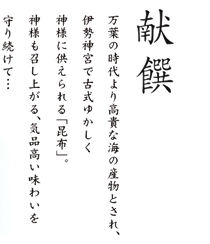 献饌
万葉の時代より高貴な海の産物とされ、
伊勢神宮で古式ゆかしく
神様に供えられる「昆布」。
神様も召し上がる、気品高い味わいを
守り続けて…